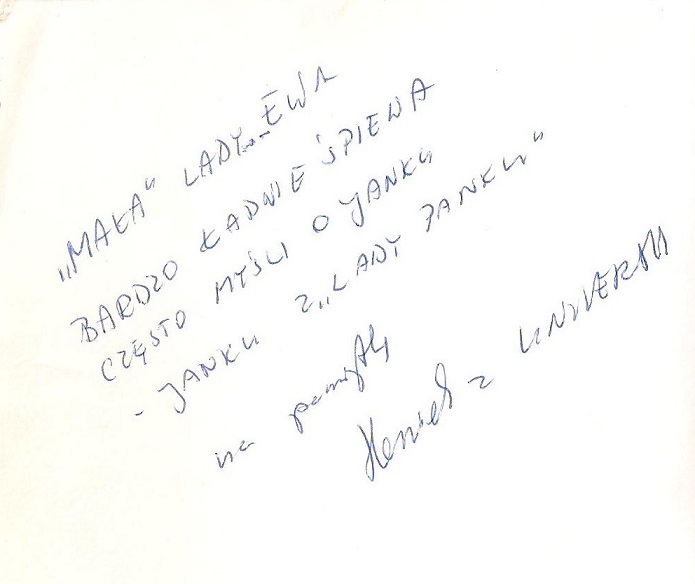 „MAŁA" LADY EWA
BARDZO ŁADNIE ŚPIEWA
CZĘSTO MYŚLI O JANKU
- JANKU Z „LADY PANKU"
na pamiątkę
Heniek z UNIVERSU